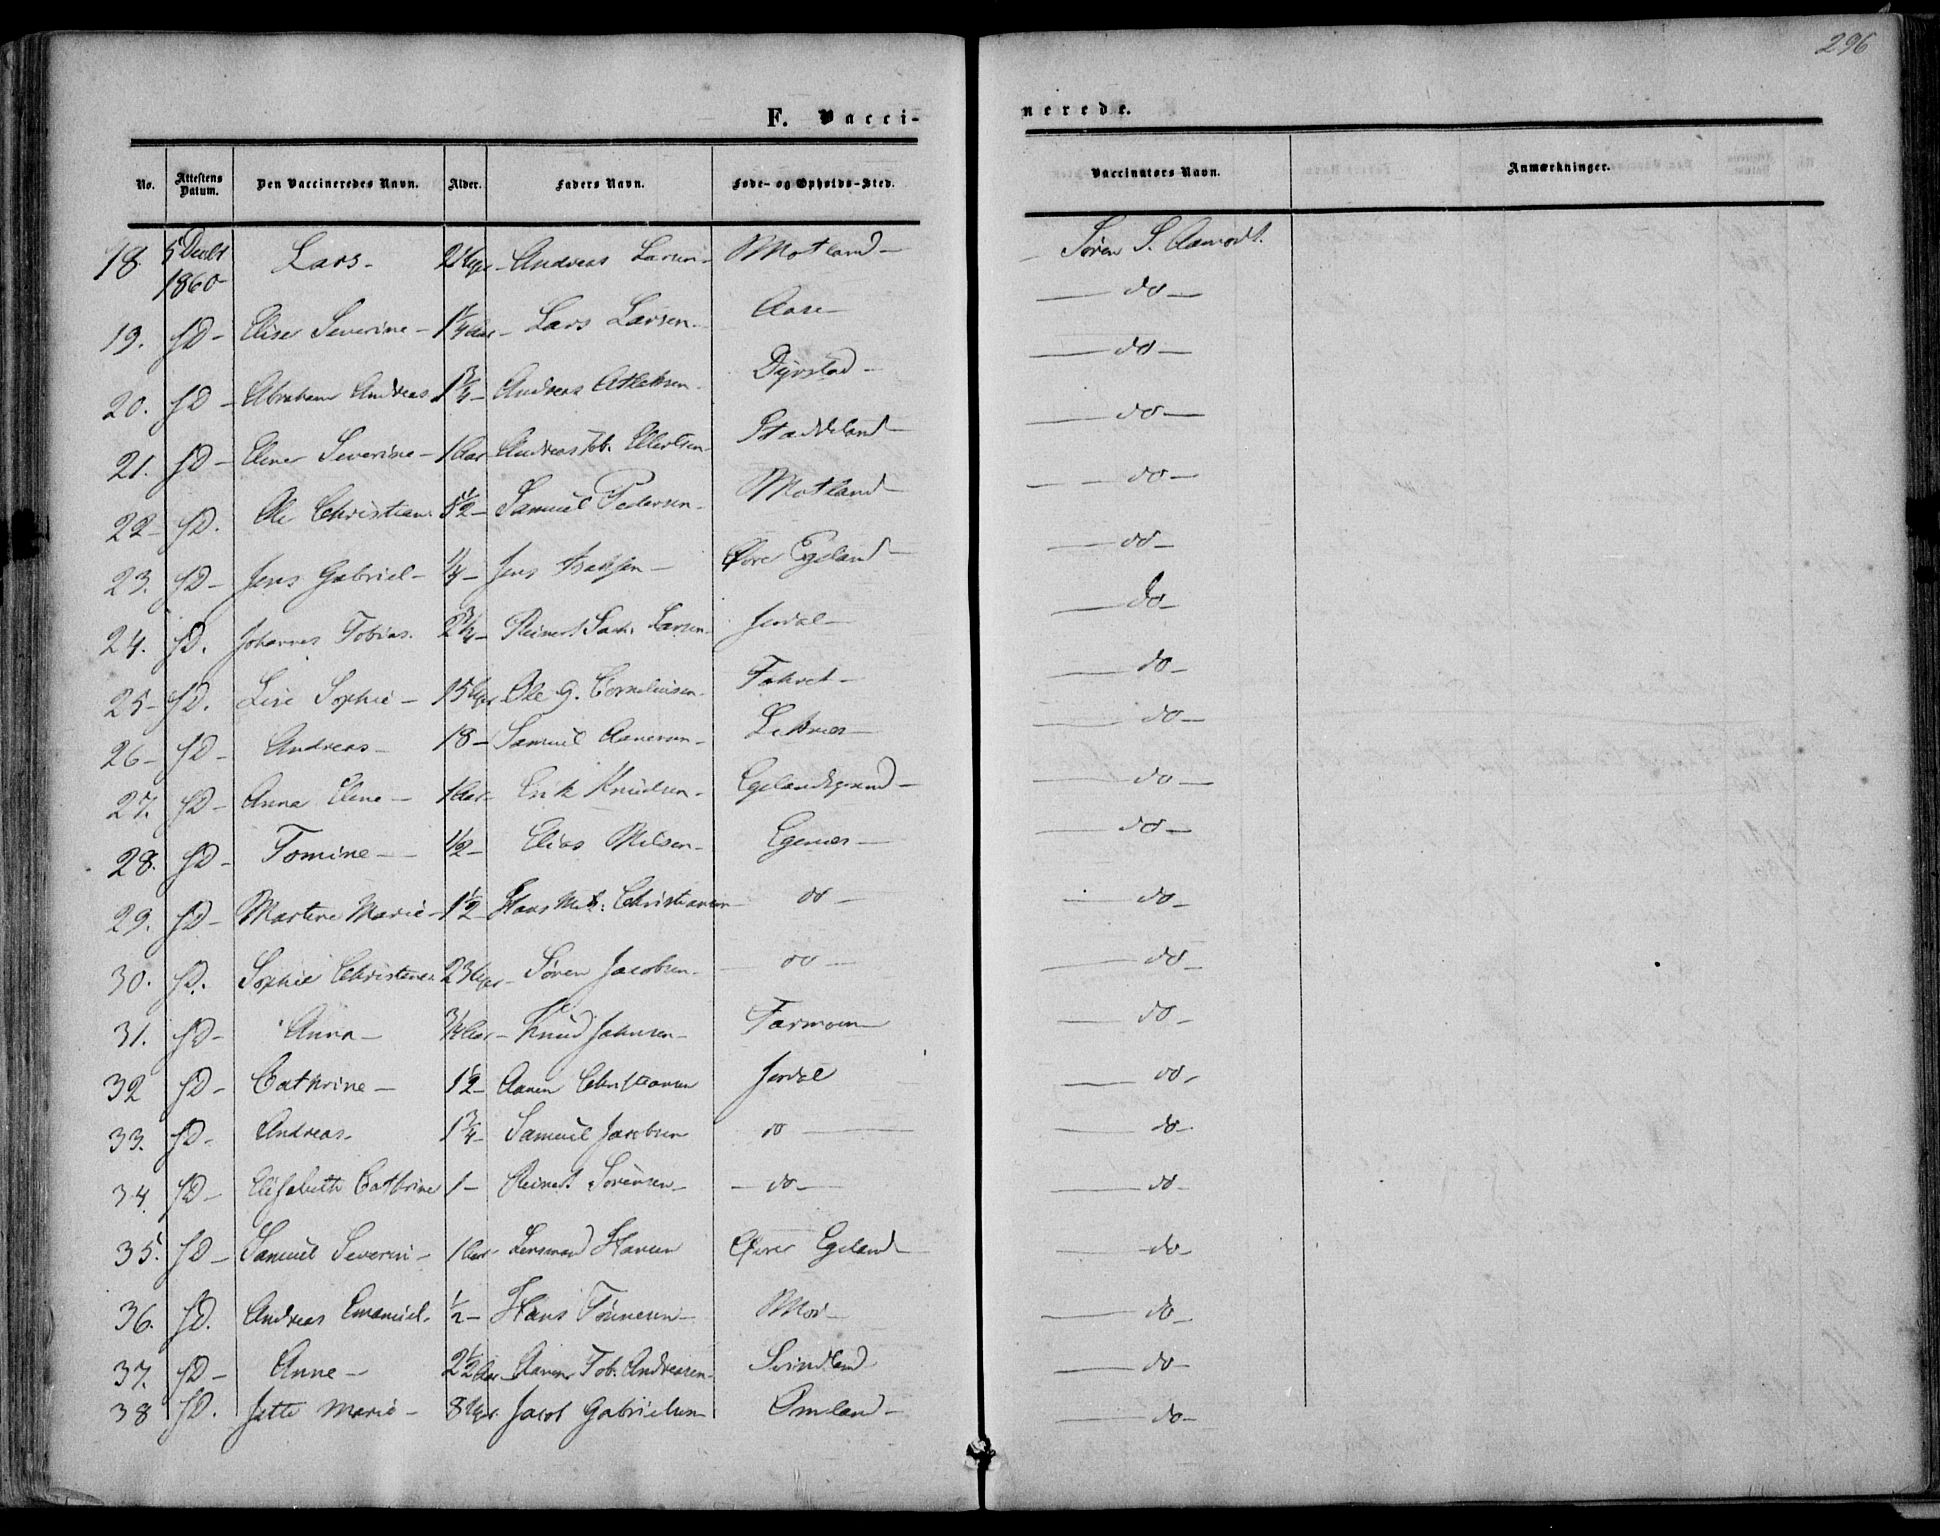 296
F. Vacci-nerede.
No. Attestens Datum. Den Vaccineredes Navn. Alder. Faders Navn. Føde- og Opholds-Sted. Vaccinators Navn. Anmærkninger.
18. 5 Decbr 1860 Lars - Andreas Larsen - Motland - Søren S. Aamodt.
19. fD - Elise Severine - 1 1/4 Aar - Lars Larsen - Aase - do -
20. fD - Abraham Andreas 1 3/4 - Andreas Atlaksen - Dyrstad - do -
21. fD - Elene Severine - 1 Aar - Andreas Tob. Ellertsen - Staddeland - do -
22 - fD. Ole Christian - Samuel Pedersen - Motland - do -
23. fD - Jens Gabriel - 1/4 - Jens Isaksen - Øvre Egeland - do -
24. fD. Johannes Tobias. 2 3/4 - Reinert Sach. Larsen - Jerdal - do -
25 - fD. Lise Sophie - 15 Uger Ole G. Corneliusen - do -
26 - fD - Andreas - 18 - Samuel Aanensen - Leknes - do -
27. fD - Anna Elene - 1 Aar - Erik Knudsen - Egelandsgrund - do -
28. fD - Tomine - 1/2 - Elias Nilsen - Egenes - do -
29. fD - Martine Marie - 1 1/2 - Hans Mich. Christiansen do - do -
30. fD. Sophie Christine 23 Uger - Søren Jacobsen - do - do -
31. fD - Anna - 3/4 Aar - Knud Johnsen - Tarmoen - do -
32 fD - Cathrine - 1 1/2 - Aanen Christiansen Jerdal do -
33. fD - Andreas - 1 3/4 - Samuel Jacobsen do - do -
34. fD - Elisabeth Cathrine 1 - Reinert Sørensen - do - do -
35. fD - Samuel Severin - 1 Aar - Lensmand Hansen Øvre Egeland - do -
36. fD. Andreas Emanuel. 1/2 - Hans Tønnesen - Moi - do -
37. fD - Anne - 2 1/2 Aar - Aanen Tob. Andreasen - Svindland - do -
38 fD. Jette Marie - 8 Uger Jacob Gabrielsen Omland - do -